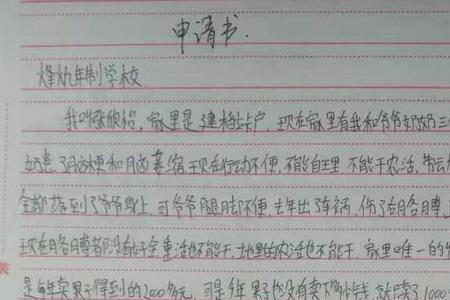 申请书.
烽火年制学校
我叫张欣怡,家里是建档站卡户,现在家里有我和爷爷奶奶三
奶患了脑梗和脑萎缩现在行动不便,不能自理 不能干农活,
全部落到了爷爷身上,可爷爷腿脚不便,去年出了车祸,伤了右胳膊,
现在胳膊都没有好全重活也不能干,地里的农活也不能干 家里唯一的
是每年卖果子得到的2000多元,可是今年果子也没有卖下多少钱 就卖了1000